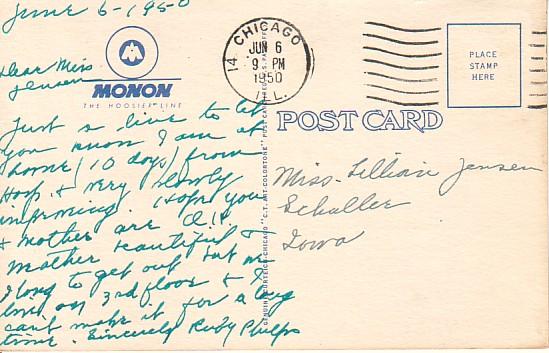 June 6-1950
Dear Miss
Jensen
MONON
THE HOOSIER LINE
Just a line to let
you know I am at
home (10 days) from
Hosp. & very slowly
improving. Hope you
& mother are O.K.
Mother beautiful &
I long to get out but
live on 3rd floor &
can't make it for a long
time. Sincerely Ruby Phelps
GENUINE CURTEICH-CHICAGO "C.T. ART-COLORTONE" POST CARD
14 CHICAGO
JUN 6
9 PM
1950
ILL.
PLACE
STAMP
HERE
POST CARD
Miss. Lillian Jensen
Schaller
Iowa